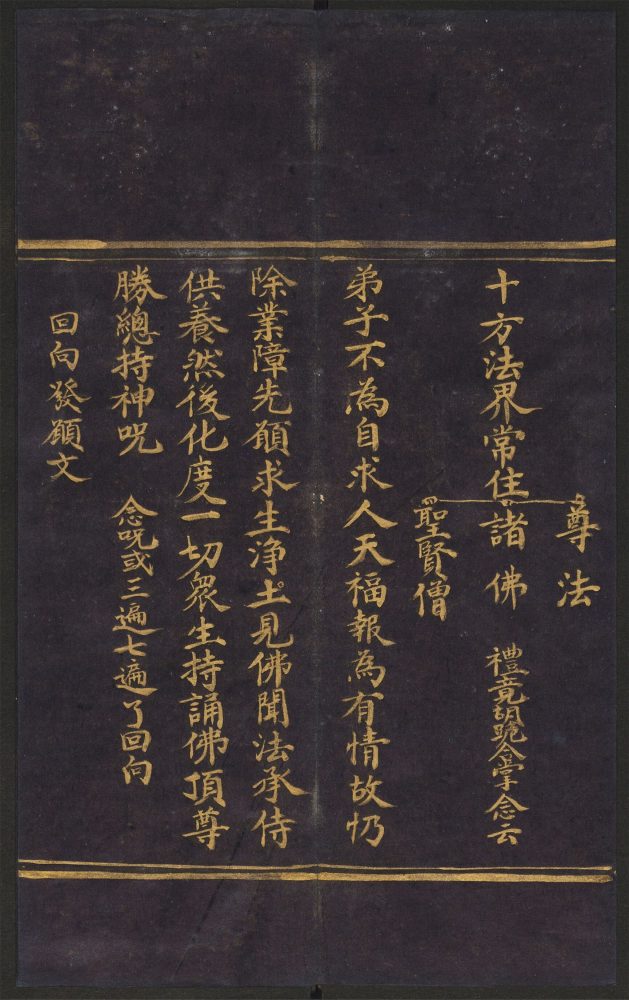 尊法
十方法界常住諸佛 禮竟胡跪合掌念云
聖賢僧
弟子不為自求人天福報為有情故忉
除業障先願求生淨土見佛聞法承侍
供養然後化度一切衆生持誦佛頂尊
勝總持神呪 念呪或三遍七遍了回向
回向發願文